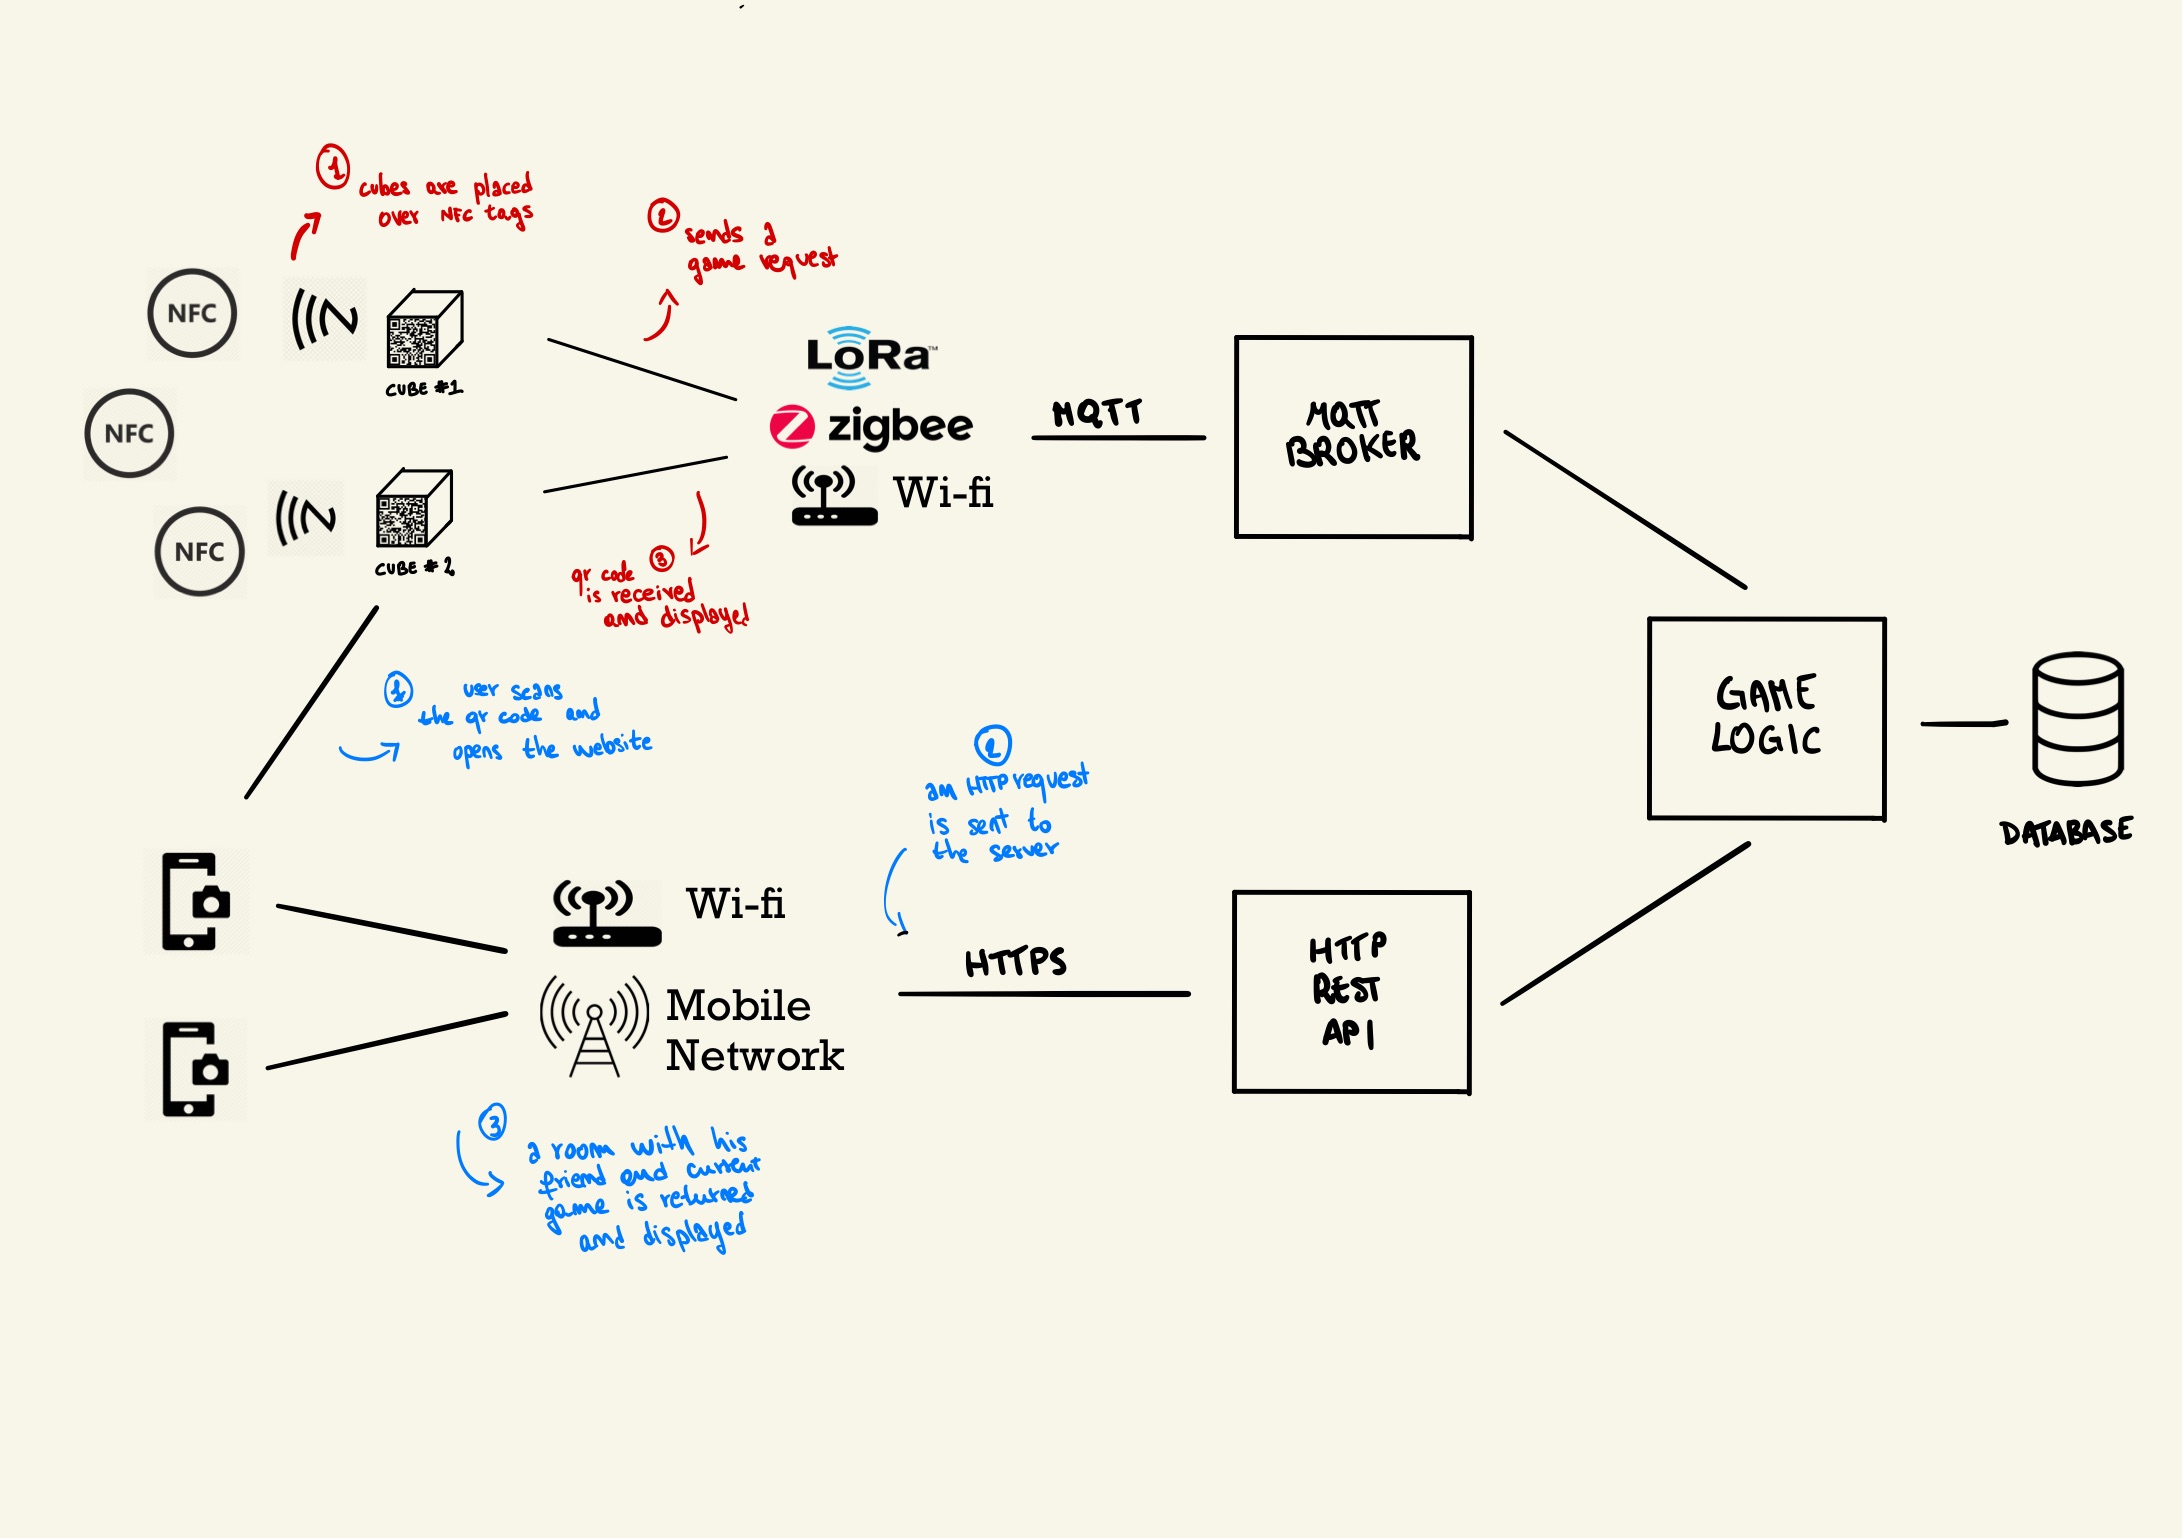 1
cubes are placed
over NFC tags
2
sends a
game request
NFC
CUBE #1
NFC
NFC
CUBE #2
LoRa™
zigbee
Wi-fi
MQTT
MQTT
BROKER
qr code 3
is received
and displayed
1 user scans
the qr code and
opens the website
GAME
LOGIC
DATABASE
2
an HTTP request
is sent to
the server
Wi-fi
Mobile
Network
HTTPS
HTTP
REST
API
3
a room with his
friend and current
game is returned
and displayed